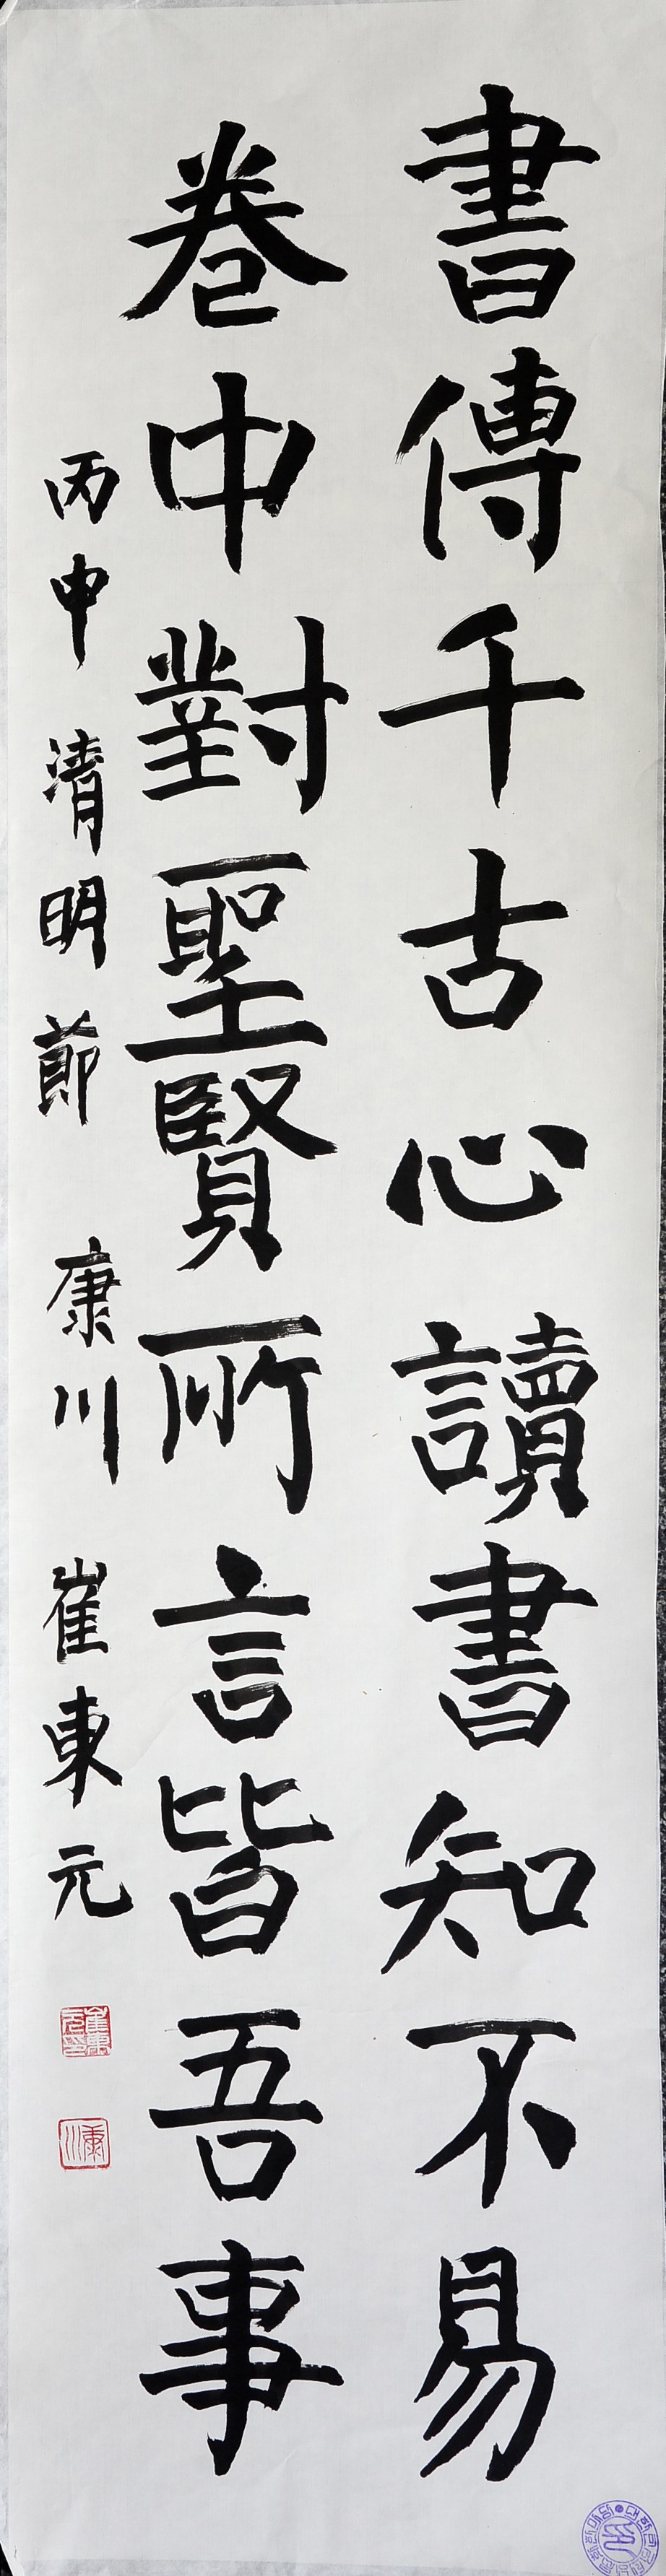 書傳千古心讀書知不易
卷中對聖賢所言皆吾事
丙申 清明節 康川 崔東元
崔東元印
康川